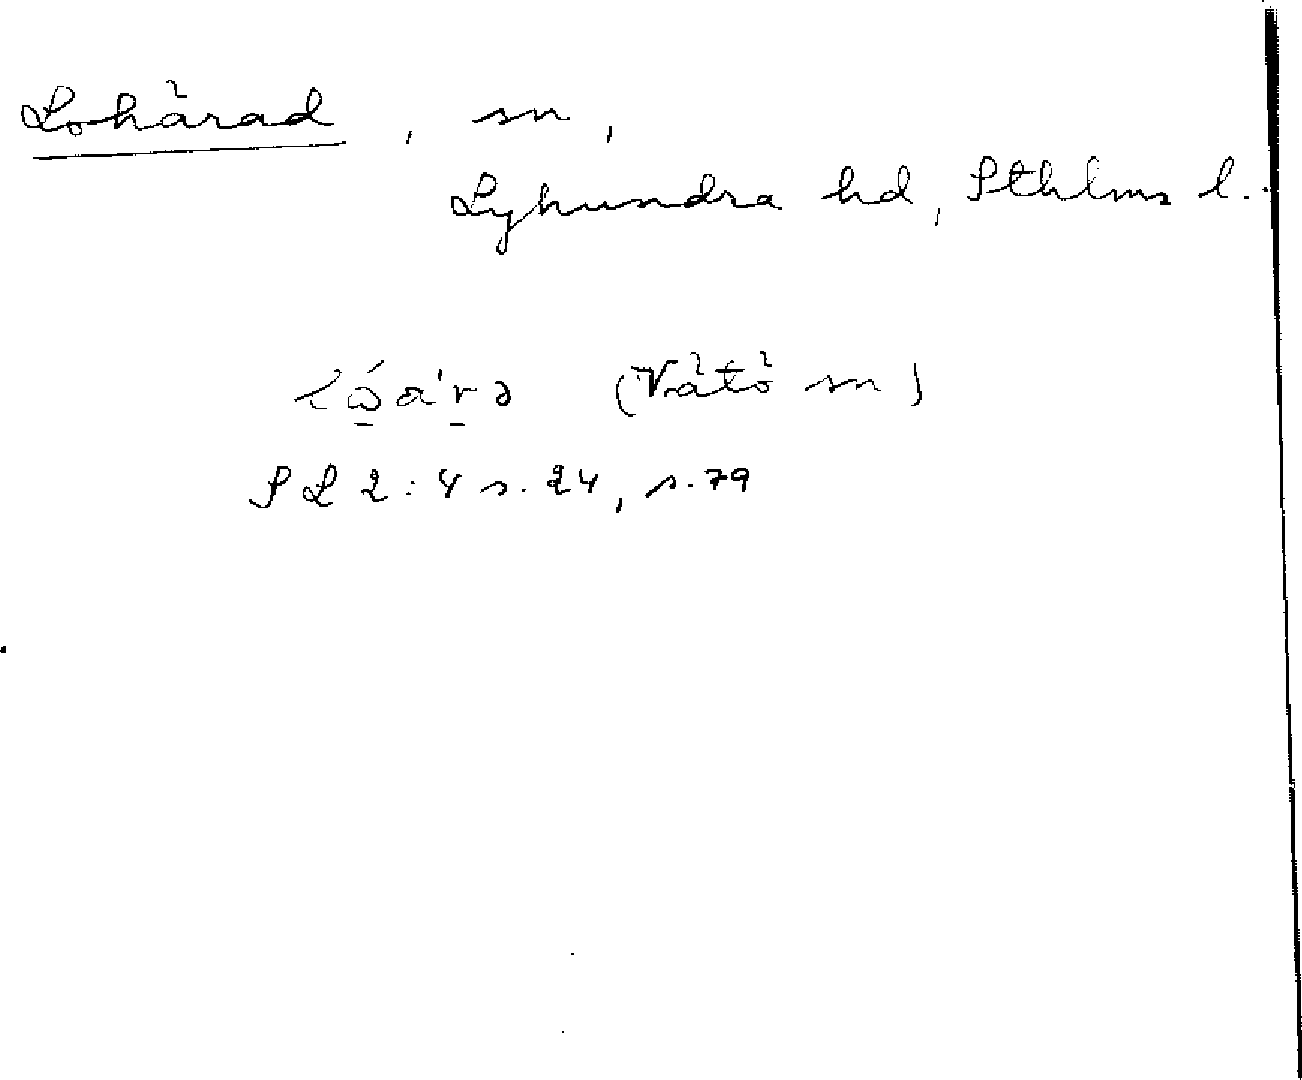 Lohärad, sn,
Lyhundra hd, Sthlms l.
(Vätö sn)
SL 2:4 s. 24, s. 79